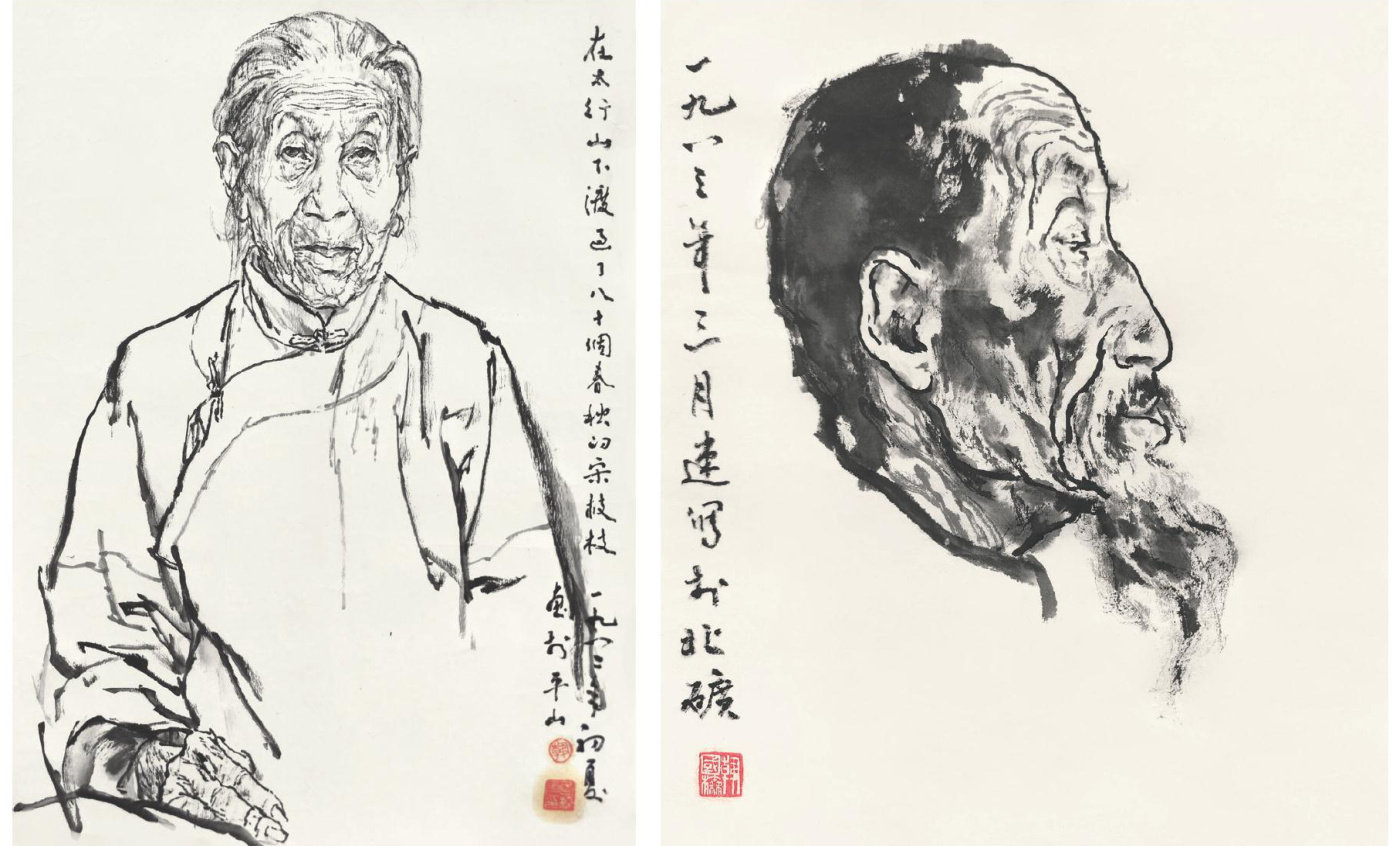 在太行山下渡过了八十個春秋的宋枝枝
一九八二年初夏
画於平山
一九八三年三月速写於北礦